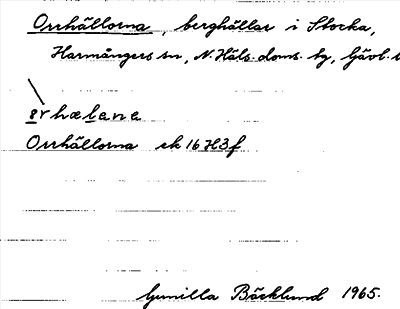 Orrhällorna, berghällar i Stocka,
Harmångers sn, N. Häls. doms. tg, Gävl.
ərhælana
Orrhällorna ek 16 H3f
Gunilla Bäcklund 1965.